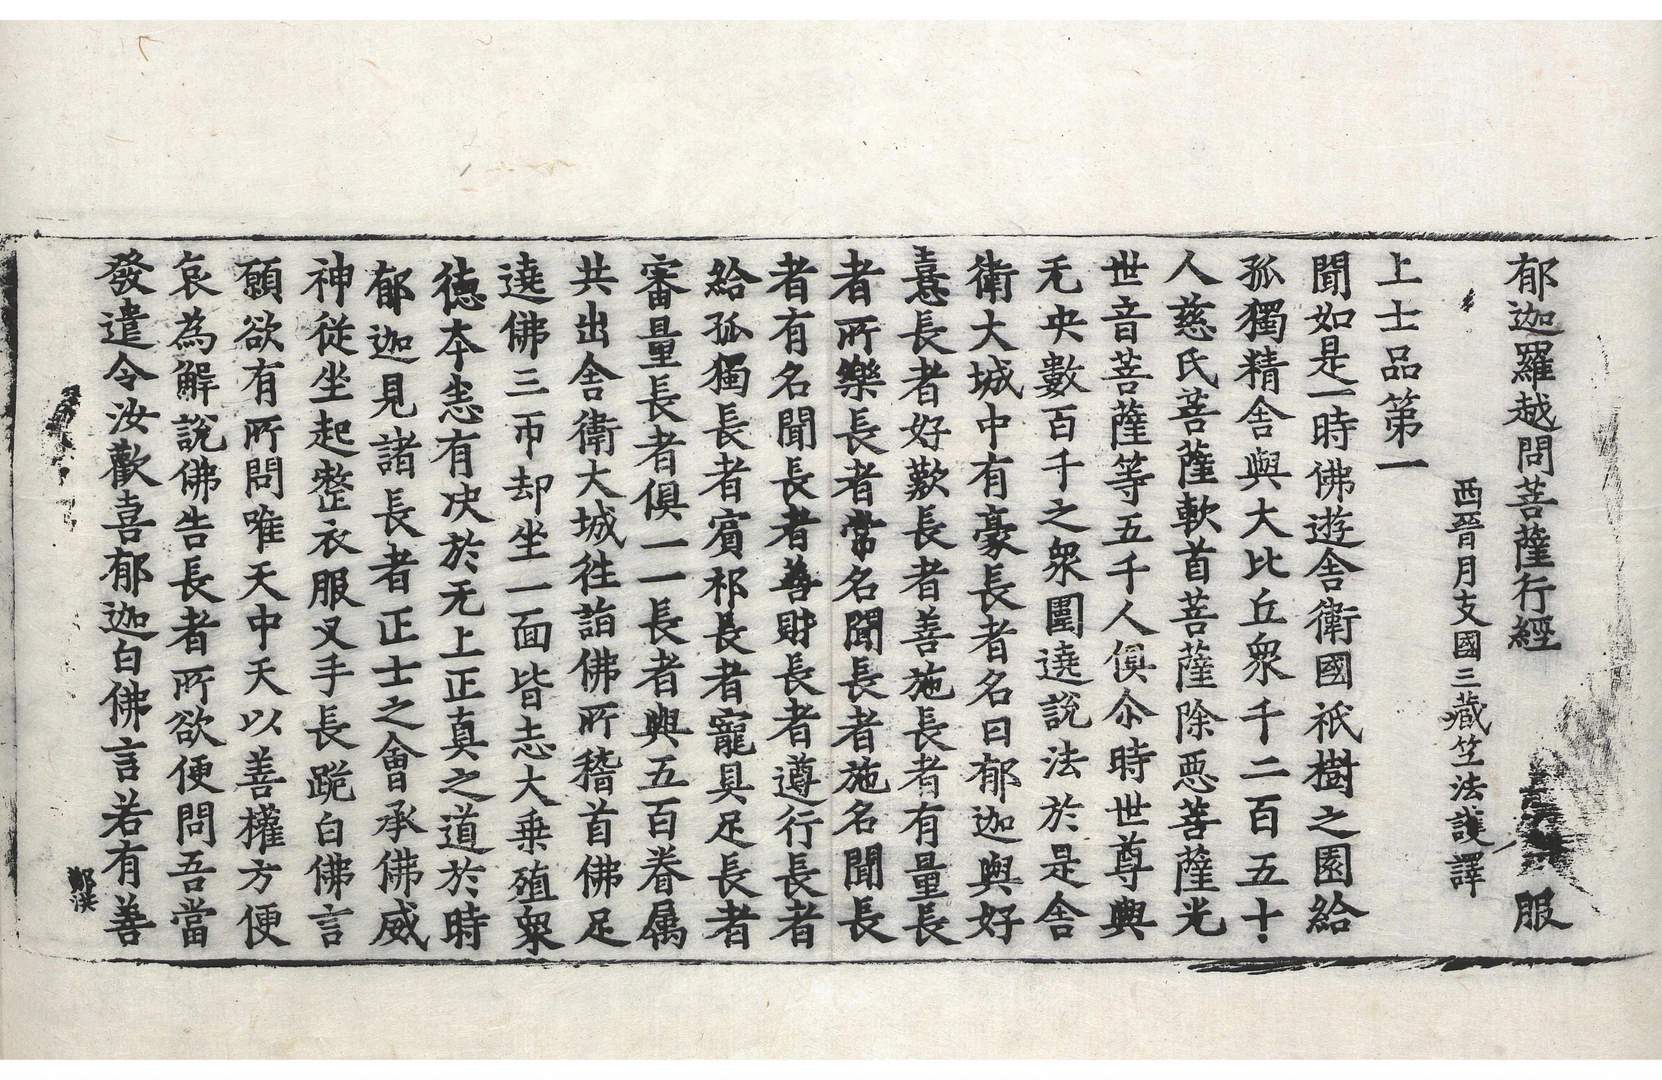 郁迦羅越問菩薩行經 服
西晉月支國三藏竺法護譯
上士品第一
聞如是一時佛遊舍衛國祇樹之園給
孤獨精舍與大比丘衆千二百五十
人慈氏菩薩軟首菩薩除惡菩薩光
世音菩薩等五千人俱尒時世尊與
无央數百千之衆圍遶說法於是舍
衛大城中有豪長者名曰郁迦與好
憙長者好歎長者善施長者有量長
者所樂長者常名聞長者施名聞長
者有名聞長者善財長者遵行長者
給孤獨長者賓祁長者寵具足長者
審量長者俱一一長者與五百眷属
共出舍衛大城往詣佛所稽首佛足
遶佛三帀却坐一面皆志大乗殖衆
徳本恙有决於无上正真之道於時
郁迦見諸長者正士之會承佛威
神従坐起整衣服叉手長跪白佛言
願欲有所問唯天中天以善權方便
哀為解說佛告長者所欲便問吾當
發遣令汝歡喜郁迦白佛言若有善